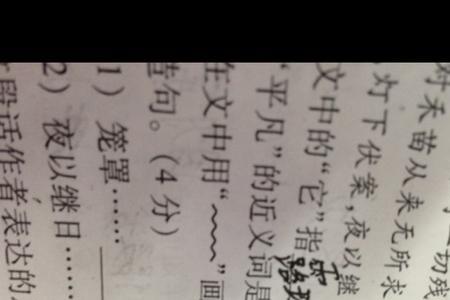 切残
对禾苗从来无所求
灯下伏案，夜以继
文中的“它”指
“平凡”的近义词是
在文中用“﹏﹏”画
造句。（4分）
1）笼罩……
2）夜以继日……
段话作者表达的